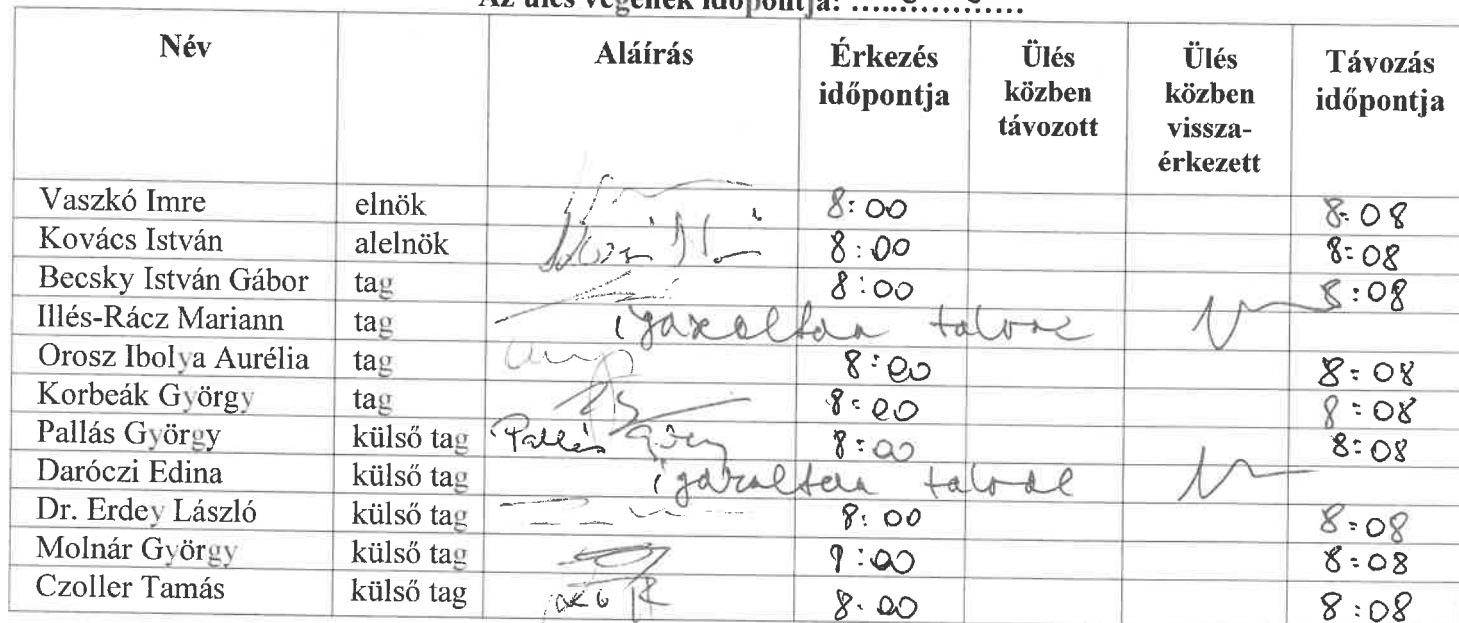 Az ülés végének időpontja: ………………
Név Aláírás Érkezés időpontja Ülés közben távozott Ülés közben vissza-érkezett Távozás időpontja
Vaszkó Imre elnök 8:00 8:08
Kovács István alelnök 8:00 8:08
Becsky István Gábor tag 8:00 8:08
Illés-Rácz Mariann tag igazoltan távol
Orosz Ibolya Aurélia tag 8:00 8:08
Korbeák György tag 8:00 8:08
Pallás György külső tag Pallás György 8:00 8:08
Daróczi Edina külső tag igazoltan távol
Dr. Erdey László külső tag 8:00 8:08
Molnár György külső tag 8:00 8:08
Czoller Tamás külső tag 8:00 8:08